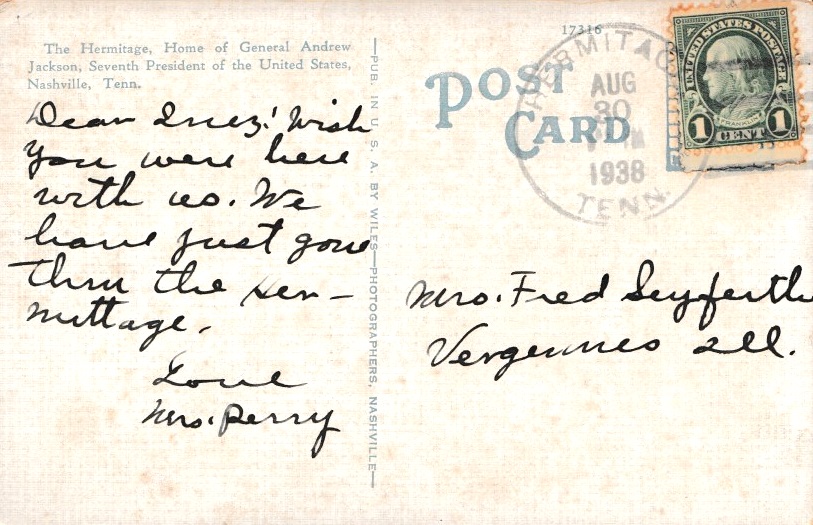 The Hermitage, Home of General Andrew
Jackson, Seventh President of the United States,
Nashville, Tenn.
Dear Inez! Wish
you were here
with us. We
have just gone
thru the Her-
mittage.
Love
Mrs. Perry
PUB. IN U. S. A. BY WILES—PHOTOGRAPHERS, NASHVILLE
17316
POST
CARD
HERMITAG
AUG
30
1938
TENN.
UNITED STATES POSTAGE
FRANKLIN
1 CENT 1
Mrs. Fred Seyferth
Vergennes Ill.